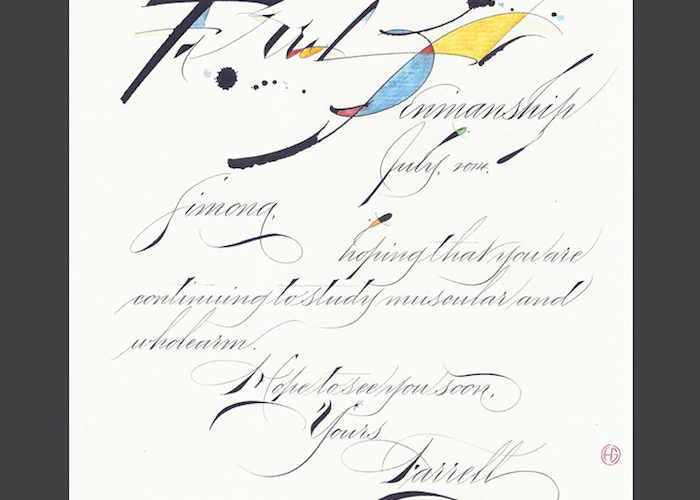 Penmanship
July, 2014.
Simona,
hoping that you are
continuing to study muscular and
wholearm.
Hope to see you soon,
Yours
Farrell